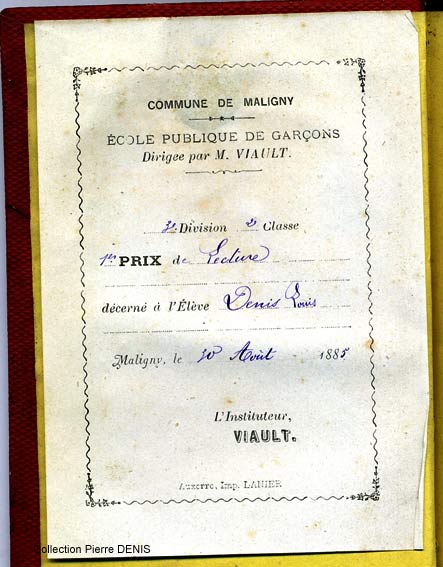 COMMUNE DE MALIGNY
ÉCOLE PUBLIQUE DE GARÇONS
Dirigée par M. VIAULT.
2e Division 2e Classe
1er PRIX de Lecture
décerné à l'Élève Denis Louis
Maligny, le 30 Août 1885
L'Instituteur,
VIAULT.
Auxerre, Imp. LANIER.
Collection Pierre DENIS